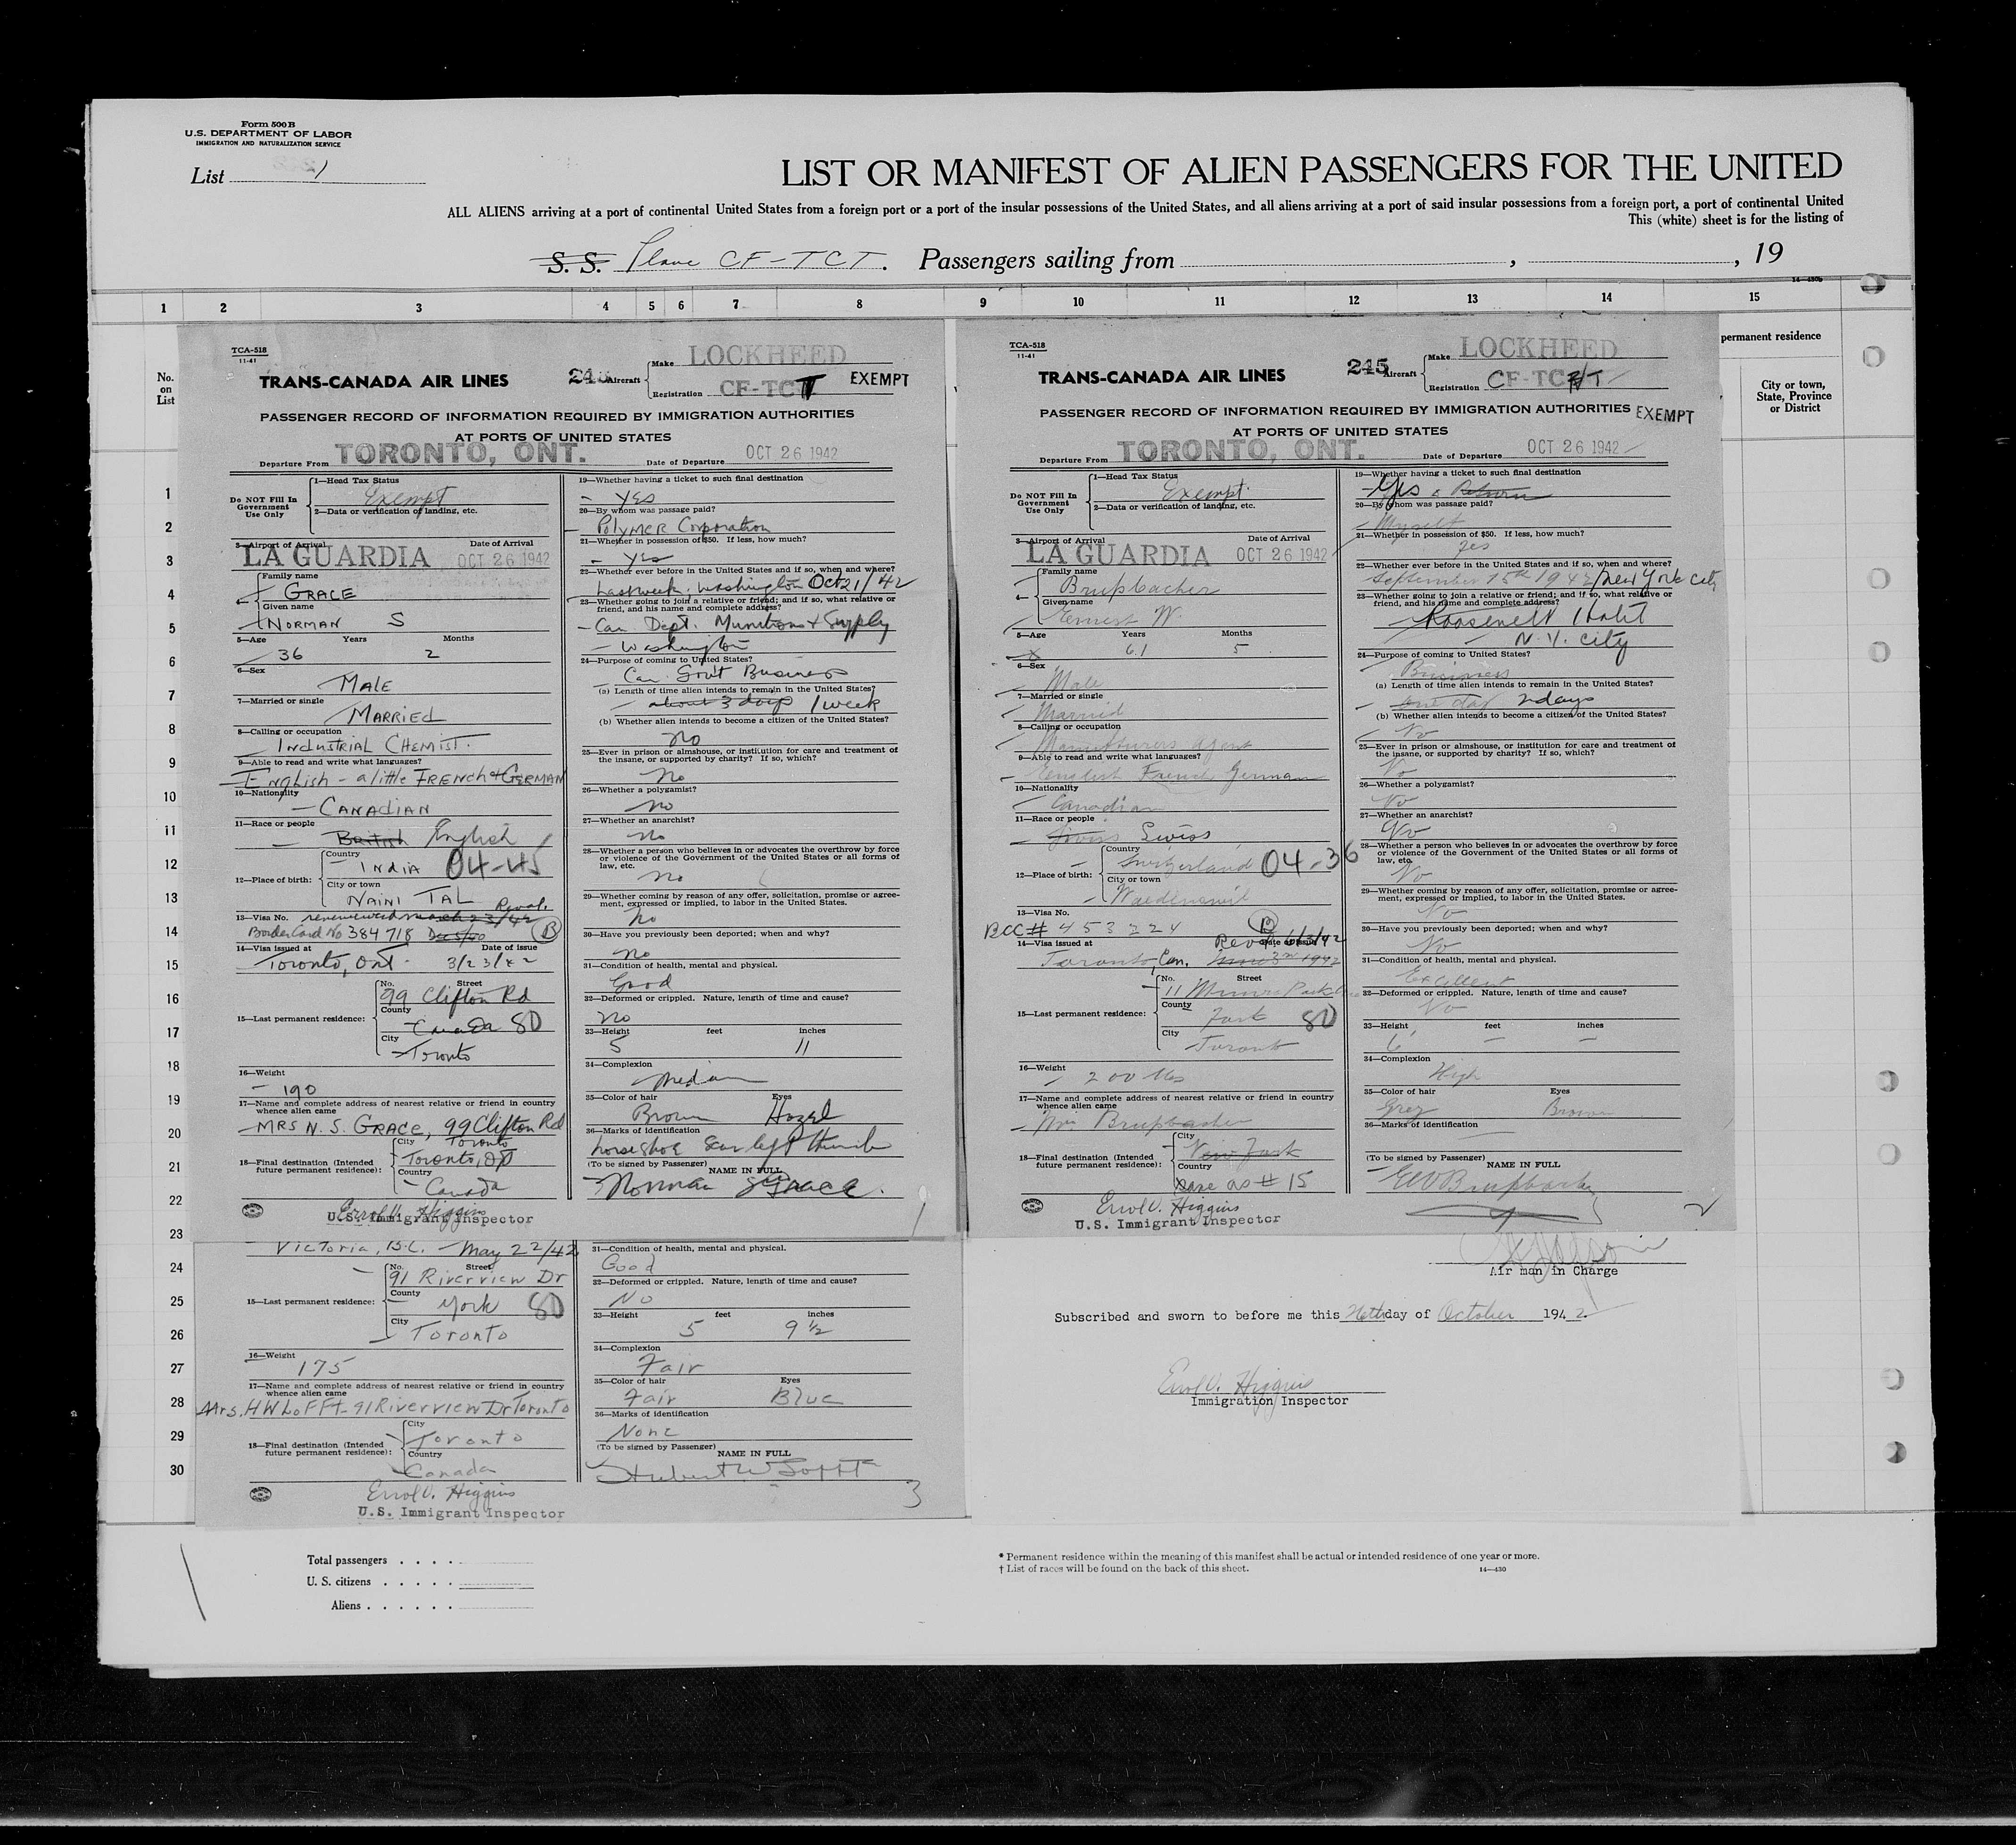 Form 500 B
U.S. DEPARTMENT OF LABOR
IMMIGRATION AND NATURALIZATION SERVICE
List 1
LIST OR MANIFEST OF ALIEN PASSENGERS FOR THE UNITED
ALL ALIENS arriving at a port of continental United States from a foreign port or a port of the insular possessions of the United States, and all aliens arriving at a port of said insular possessions from a foreign port, a port of continental United
This (white) sheet is for the listing of
S. S. Plane CF-TCT. Passengers sailing from , , 19
14—430b
1 2 3 4 5 6 7 8 9 10 11 12 13 14 15
No. on List
permanent residence
City or town, State, Province or District
1
2
3
4
5
6
7
8
9
10
11
12
13
14
15
16
17
18
19
20
21
22
23
24
25
26
27
28
29
30
TCA-518
11-41
TRANS-CANADA AIR LINES
245 Aircraft
Make LOCKHEED
Registration CF-TCT
EXEMPT
PASSENGER RECORD OF INFORMATION REQUIRED BY IMMIGRATION AUTHORITIES
AT PORTS OF UNITED STATES
Departure From TORONTO, ONT. Date of Departure OCT 26 1942
Do NOT Fill In Government Use Only
1—Head Tax Status
Exempt
2—Data or verification of landing, etc.
3—Airport of Arrival Date of Arrival
LA GUARDIA OCT 26 1942
4— Family name
GRACE
Given name
NORMAN S
5—Age Years Months
36 2
6—Sex
MALE
7—Married or single
MARRIED
8—Calling or occupation
INDUSTRIAL CHEMIST.
9—Able to read and write what languages?
English - a little FRENCH & GERMAN
10—Nationality
CANADIAN
11—Race or people
British English
12—Place of birth:
Country
INDIA 04-45
City or town
NAINI TAL
13—Visa No. renewed march 23/42 Reval.
Border Card No 384718 Dec 5/40 B
14—Visa issued at Date of issue
Toronto, Ont. 3/23/42
15—Last permanent residence:
No. Street
99 Clifton Rd
County
Canada 80
City
Toronto
16—Weight
190
17—Name and complete address of nearest relative or friend in country whence alien came
MRS N. S. GRACE, 99 Clifton Rd
Toronto
18—Final destination (Intended future permanent residence):
City
Toronto, Ont
Country
Canada
Errol V. Higgins
U.S. Immigrant Inspector
19—Whether having a ticket to such final destination
Yes
20—By whom was passage paid?
Polymer Corporation
21—Whether in possession of $50. If less, how much?
Yes
22—Whether ever before in the United States and if so, when and where?
Last week, Washington Oct 21/42
23—Whether going to join a relative or friend; and if so, what relative or friend, and his name and complete address?
Can Dept. Munitions & Supply
Washington
24—Purpose of coming to United States?
Can. Gov't Business
(a) Length of time alien intends to remain in the United States?
about 3 days 1 week
(b) Whether alien intends to become a citizen of the United States?
no
25—Ever in prison or almshouse, or institution for care and treatment of the insane, or supported by charity? If so, which?
no
26—Whether a polygamist?
no
27—Whether an anarchist?
no
28—Whether a person who believes in or advocates the overthrow by force or violence of the Government of the United States or all forms of law, etc.
no
29—Whether coming by reason of any offer, solicitation, promise or agreement, expressed or implied, to labor in the United States.
no
30—Have you previously been deported; when and why?
no
31—Condition of health, mental and physical.
Good
32—Deformed or crippled. Nature, length of time and cause?
no
33—Height feet inches
5 11
34—Complexion
35—Color of hair Eyes
Brown Hazel
36—Marks of identification
horseshoe scar left thumb
(To be signed by Passenger) NAME IN FULL
Norman S Grace.
1
TCA-518
11-41
TRANS-CANADA AIR LINES
245 Aircraft
Make LOCKHEED
Registration CF-TCT
PASSENGER RECORD OF INFORMATION REQUIRED BY IMMIGRATION AUTHORITIES EXEMPT
AT PORTS OF UNITED STATES
Departure From TORONTO, ONT. Date of Departure OCT 26 1942
Do NOT Fill In Government Use Only
1—Head Tax Status
Exempt
2—Data or verification of landing, etc.
3—Airport of Arrival Date of Arrival
LA GUARDIA OCT 26 1942
4— Family name
Brupbacher
Given name
Ernest W.
5—Age Years Months
61 5
6—Sex
Male
7—Married or single
Married
8—Calling or occupation
Manufacturers Agent
9—Able to read and write what languages?
English French German
10—Nationality
Canadian
11—Race or people
Swiss Swiss
12—Place of birth:
Country
Switzerland 04-36
City or town
Waedenswil
13—Visa No.
BCC# 453224 B
14—Visa issued at Date of issue
Toronto, Can. Reval. 6/3/42
15—Last permanent residence:
No. Street
11 Munro Park
County
York 80
City
Toronto
16—Weight
200 lbs
17—Name and complete address of nearest relative or friend in country whence alien came
Mrs Brupbacher
18—Final destination (Intended future permanent residence):
City
New York
Country
same as # 15
Errol V. Higgins
U.S. Immigrant Inspector
19—Whether having a ticket to such final destination
Yes & Return
20—By whom was passage paid?
Myself
21—Whether in possession of $50. If less, how much?
yes
22—Whether ever before in the United States and if so, when and where?
September 15th 1942 New York City
23—Whether going to join a relative or friend; and if so, what relative or friend, and his name and complete address?
Roosevelt Hotel
N.Y. City
24—Purpose of coming to United States?
Business
(a) Length of time alien intends to remain in the United States?
one day 2 days
(b) Whether alien intends to become a citizen of the United States?
No
25—Ever in prison or almshouse, or institution for care and treatment of the insane, or supported by charity? If so, which?
No
26—Whether a polygamist?
No
27—Whether an anarchist?
No
28—Whether a person who believes in or advocates the overthrow by force or violence of the Government of the United States or all forms of law, etc.
No
29—Whether coming by reason of any offer, solicitation, promise or agreement, expressed or implied, to labor in the United States.
No
30—Have you previously been deported; when and why?
No
31—Condition of health, mental and physical.
Excellent
32—Deformed or crippled. Nature, length of time and cause?
No
33—Height feet inches
6 — —
34—Complexion
High
35—Color of hair Eyes
Grey Brown
36—Marks of identification
(To be signed by Passenger) NAME IN FULL
EW Brupbacher
2
Victoria, B.C. May 22/42
15—Last permanent residence:
No. Street
91 Riverview Dr
County
York 80
City
Toronto
16—Weight
175
17—Name and complete address of nearest relative or friend in country whence alien came
Mrs. H W LOFFT - 91 Riverview Dr Toronto
18—Final destination (Intended future permanent residence):
City
Toronto
Country
Canada
Errol V. Higgins
U.S. Immigrant Inspector
31—Condition of health, mental and physical.
Good
32—Deformed or crippled. Nature, length of time and cause?
No
33—Height feet inches
5 9 ½
34—Complexion
Fair
35—Color of hair Eyes
Fair Blue
36—Marks of identification
None
(To be signed by Passenger) NAME IN FULL
Hubert W Lofft
3
Air man in Charge
Subscribed and sworn to before me this 26th day of October 1942
Errol V. Higgins
Immigration Inspector
Total passengers . . . .
U. S. citizens . . . . .
Aliens . . . . . .
* Permanent residence within the meaning of this manifest shall be actual or intended residence of one year or more.
† List of races will be found on the back of this sheet. 14—430